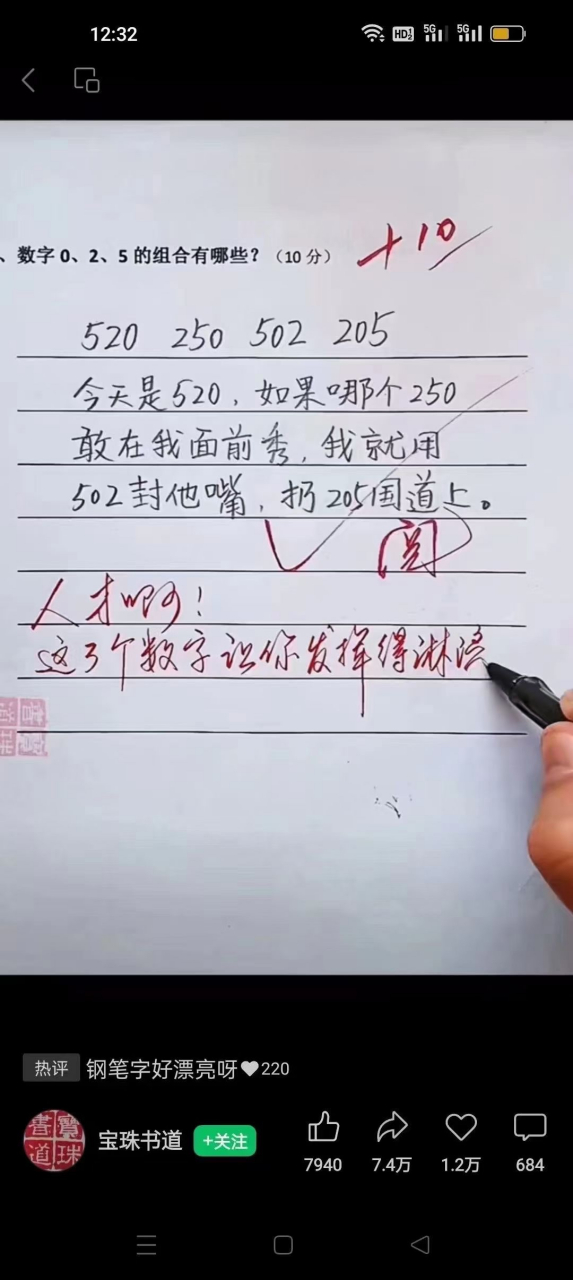 12:32
HD 5G 5G
、数字 0、2、5 的组合有哪些？（10 分）
+10
520 250 502 205
今天是520，如果哪个250
敢在我面前秀，我就用
502封他嘴，扔205国道上。
阅
人才啊！
这3个数字让你发挥得淋漓
書寶道珠
热评 钢笔字好漂亮呀❤220
書寶道珠
宝珠书道 +关注
7940 7.4万 1.2万 684